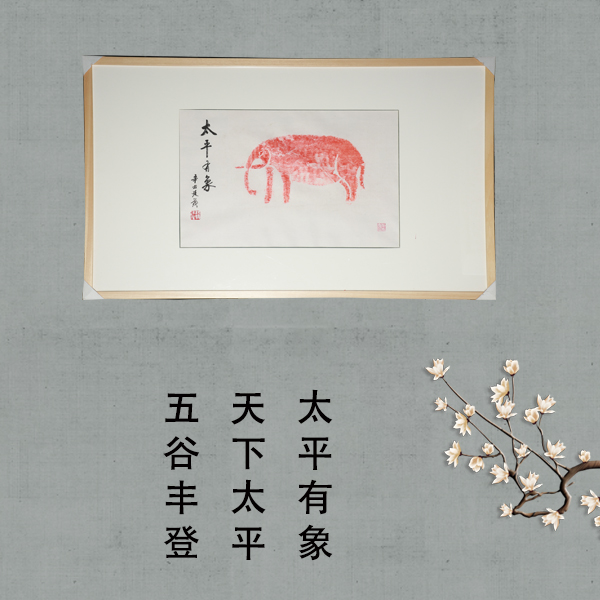 太平有象
太平有象
天下太平
五谷丰登